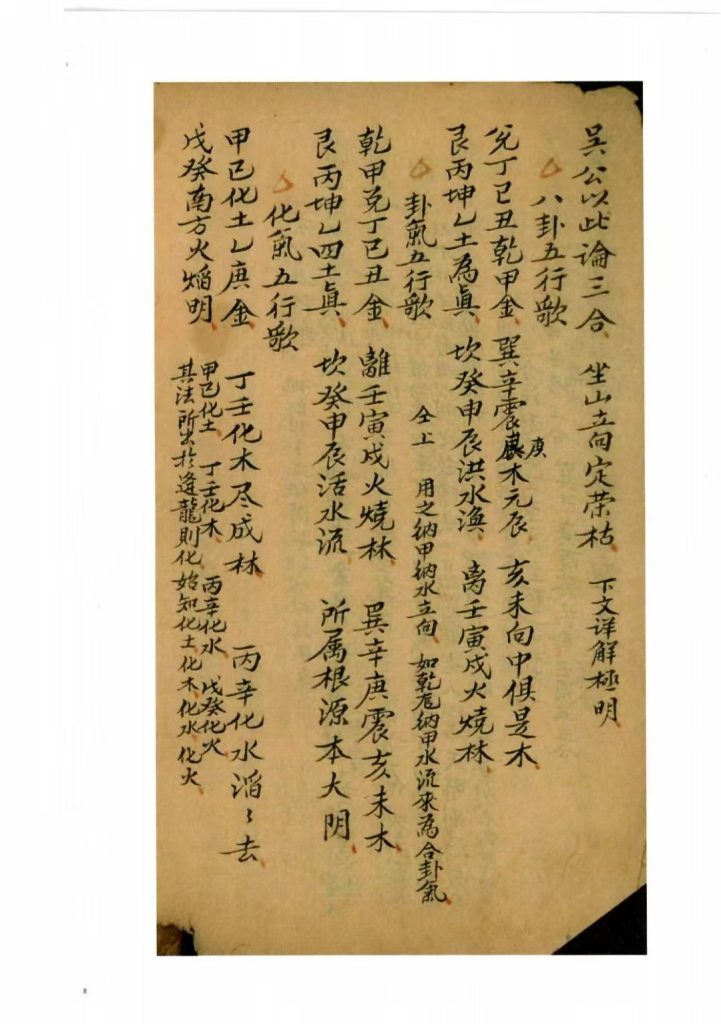 吴公以此論三合、坐山立向定荣枯、下文详解極明、
八卦五行歌
兑丁巳丑乾甲金、巽辛震庚木元辰、亥未向中俱是木、
艮丙坤乙土為眞、坎癸申辰洪水渔、离壬寅戌火燒林、
卦氣五行歌 仝上 用之纳甲纳水立向、如乾龙纳甲水流來為合卦氣、
乾甲兑丁巳丑金、離壬寅戌火燒林、巽辛庚震亥未木、
艮丙坤乙四土眞、坎癸申辰活水流、所属根源本大阴、
化氣五行歌
甲己化土乙庚金、丁壬化木尽成林、丙辛化水滔〻去、
戊癸南方火焔明、甲己化土、丁壬化木、丙辛化水、戊癸化火、
其法所出於逢龍則化、始知化土化木、化水化火、
8